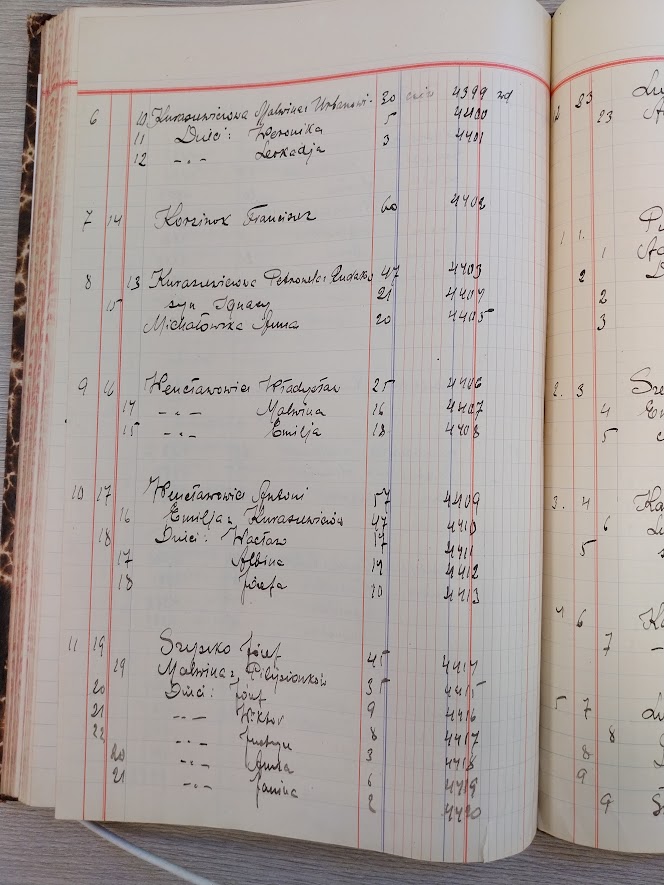 6 10 Kuraszewiczowa Malwina z Urbanowi- 30 4399 wd
11 Dzieci: Weronika 5 4400
12 -"- Leokadja 3 4401
7 14 Korzinok Franciszek 60 4402
8 13 Kuraszewiczowa Petronela z Rudaków 47 4403
15 syn Ignacy 21 4404
Michałowska Anna 20 4405
9 16 Wencławowicz Władysław 25 4406
14 -"- Malwina 16 4407
15 -"- Emilja 18 4408
10 17 Wencławowicz Antoni 57 4409
16 Emilja z Kuraszewiczów 47 4410
18 Dzieci: Wacław 17 4411
17 Albina 14 4412
18 Józefa 10 4413
11 19 Szyszko Józef 45 4414
19 Malwina z 35 4415
20 Dzieci: Józef 9 4416
21 -"- Wiktor 8 4417
22 -"- Justyn 3 4418
20 -"- Anna 6 4419
21 -"- Janina 2 4420
2 23
23
1 1.
1
2
2
3
2. 3
4
5
3. 4
6
5
4 6
7
5 7
8
8
9
9